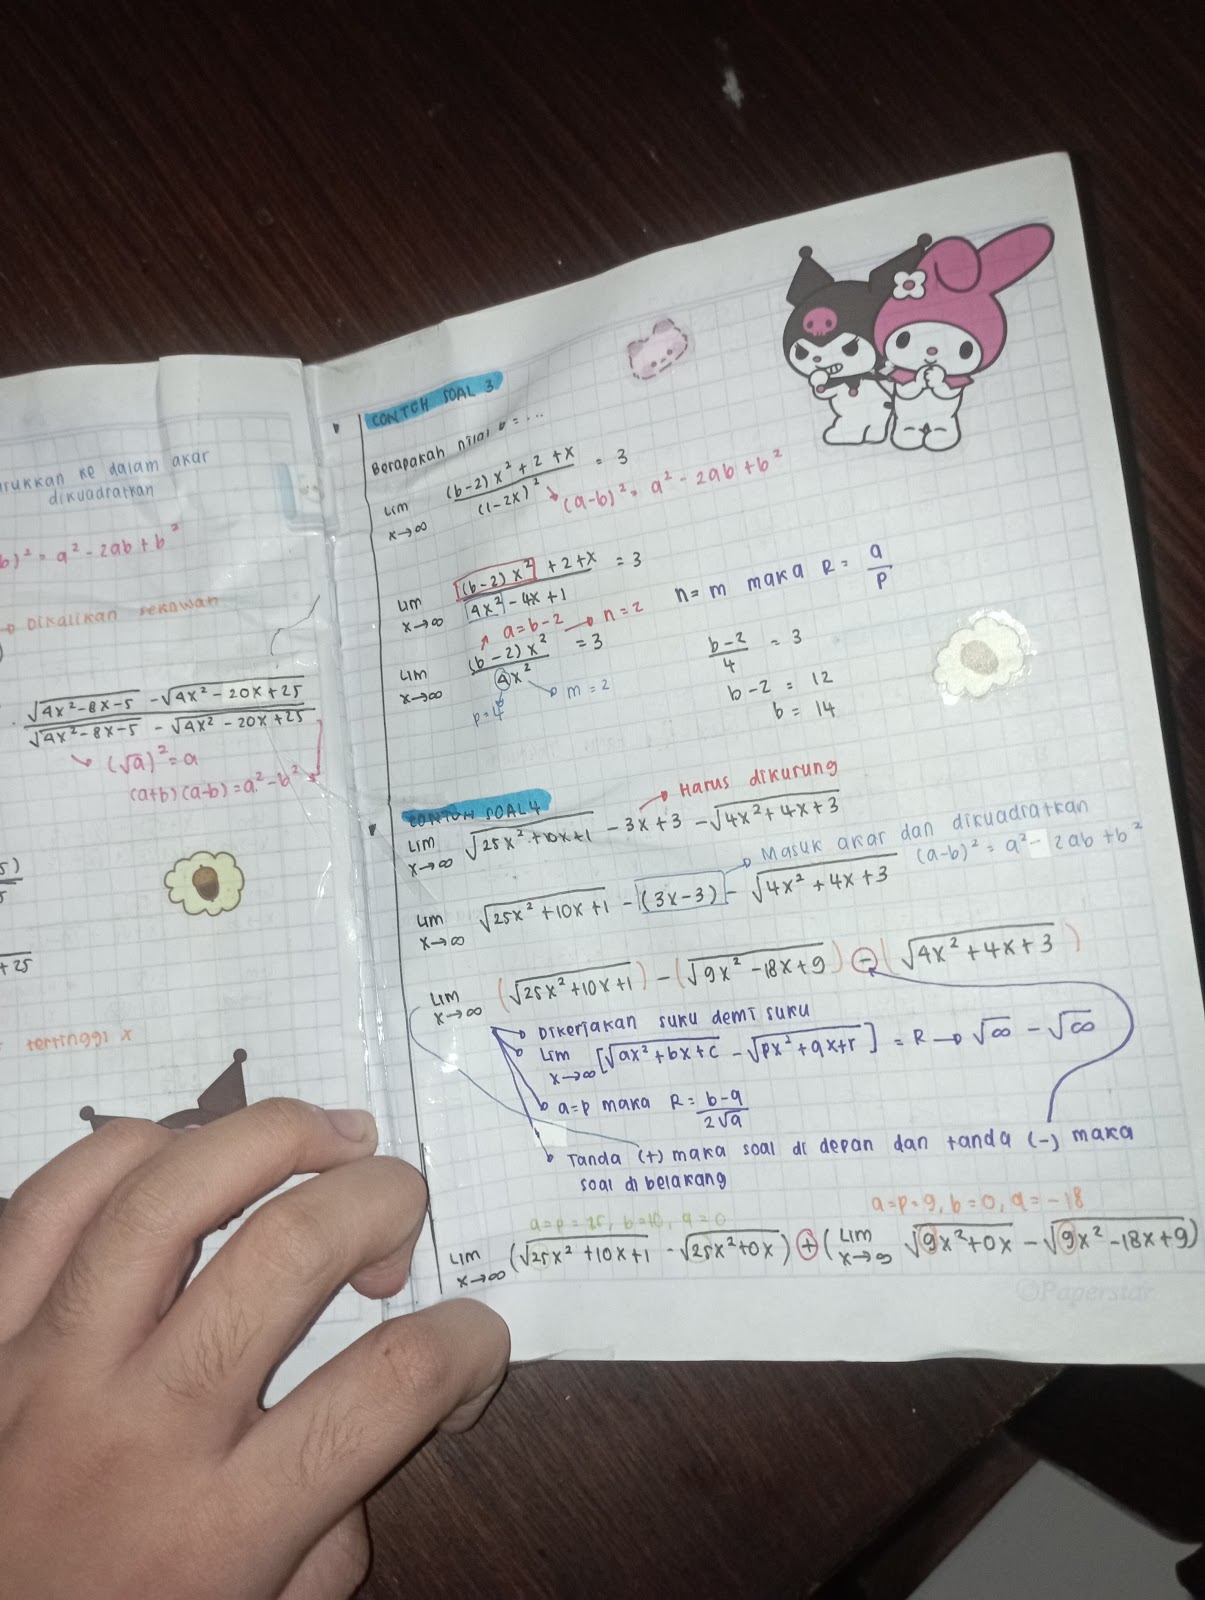 rukkan ke dalam akar
dikuadratkan
b)² = a² - 2ab + b²
→ Dikalikan sekawan
√4x²-8x-5 - √4x² - 20x+25
√4x²-8x-5 - √4x² - 20x+25
(√a)² = a
(a+b)(a-b) = a² - b²
+25
tertinggi x
CONTOH SOAL 3
Berapakah nilai b = ...
Lim x→∞ (b-2)x² + 2 + x / (1-2x)² = 3
(a-b)² = a² - 2ab + b²
Lim x→∞ (b-2)x² + 2 + x / 4x² - 4x + 1 = 3
n = m maka R = a/p
a = b-2 → n = 2
Lim x→∞ (b-2)x² / 4x² = 3
p = 4
m = 2
b-2/4 = 3
b-2 = 12
b = 14
CONTOH SOAL 4
→ Harus dikurung
Lim x→∞ √25x² + 10x+1 - 3x+3 - √4x² + 4x+3
→ Masuk akar dan dikuadratkan
(a-b)² = a² - 2ab + b²
Lim x→∞ √25x² + 10x+1 - (3x-3) - √4x² + 4x+3
Lim x→∞ (√25x² + 10x+1) - (√9x² - 18x+9) - (√4x² + 4x+3)
Dikerjakan suku demi suku
Lim x→∞ [√ax² + bx+c - √px² + qx+r] = R → √∞ - √∞
a=p maka R = b-q/2√a
Tanda (+) maka soal di depan dan tanda (-) maka
soal di belakang
a=p=25, b=10, q=0
a=p=9, b=0, q=-18
Lim x→∞ (√25x² + 10x+1 - √25x²+0x) + (Lim x→∞ √9x²+0x - √9x² - 18x+9)
©Paperstar